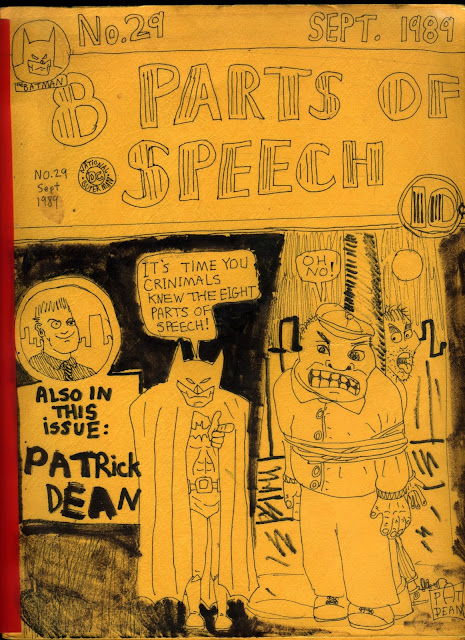 No. 29
SEPT. 1989
BATMAN
8 PARTS OF
SPEECH
NO. 29
Sept
1989
NATIONAL
10¢
IT'S TIME YOU
CRINIMALS
KNEW THE EIGHT
PARTS OF
SPEECH!
OH
NO!
ALSO IN
THIS
ISSUE:
PATRicK
DEAN
PAT
DEAN